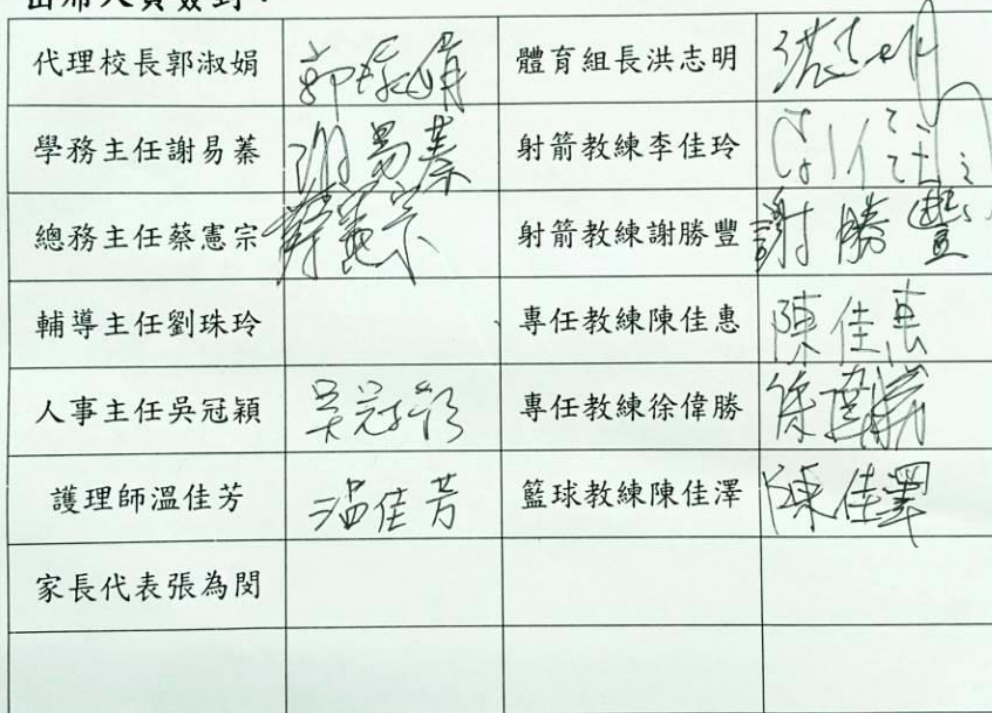 出席人員簽到：
代理校長郭淑娟 郭淑娟 體育組長洪志明 洪志明
學務主任謝易蓁 謝易蓁 射箭教練李佳玲
總務主任蔡憲宗 蔡憲宗 射箭教練謝勝豐 謝勝豐
輔導主任劉珠玲 專任教練陳佳惠 陳佳惠
人事主任吳冠穎 吳冠穎 專任教練徐偉勝 徐偉勝
護理師溫佳芳 温佳芳 籃球教練陳佳澤 陳佳澤
家長代表張為閔